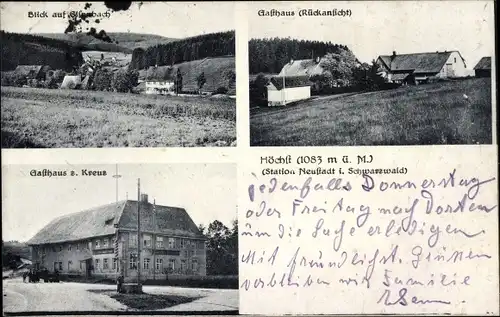 Blick auf Eisenbach
Gasthaus (Rückansicht)
Gasthaus z. Kreuz
Höchst (1083 m ü. M.)
(Station Neustadt i. Schwarzwald)
jedenfalls Donnerstag
oder Freitag nach dorten
um die Sache erledigen.
Mit freundlichst. Grüssen
verbleiben wir Familie